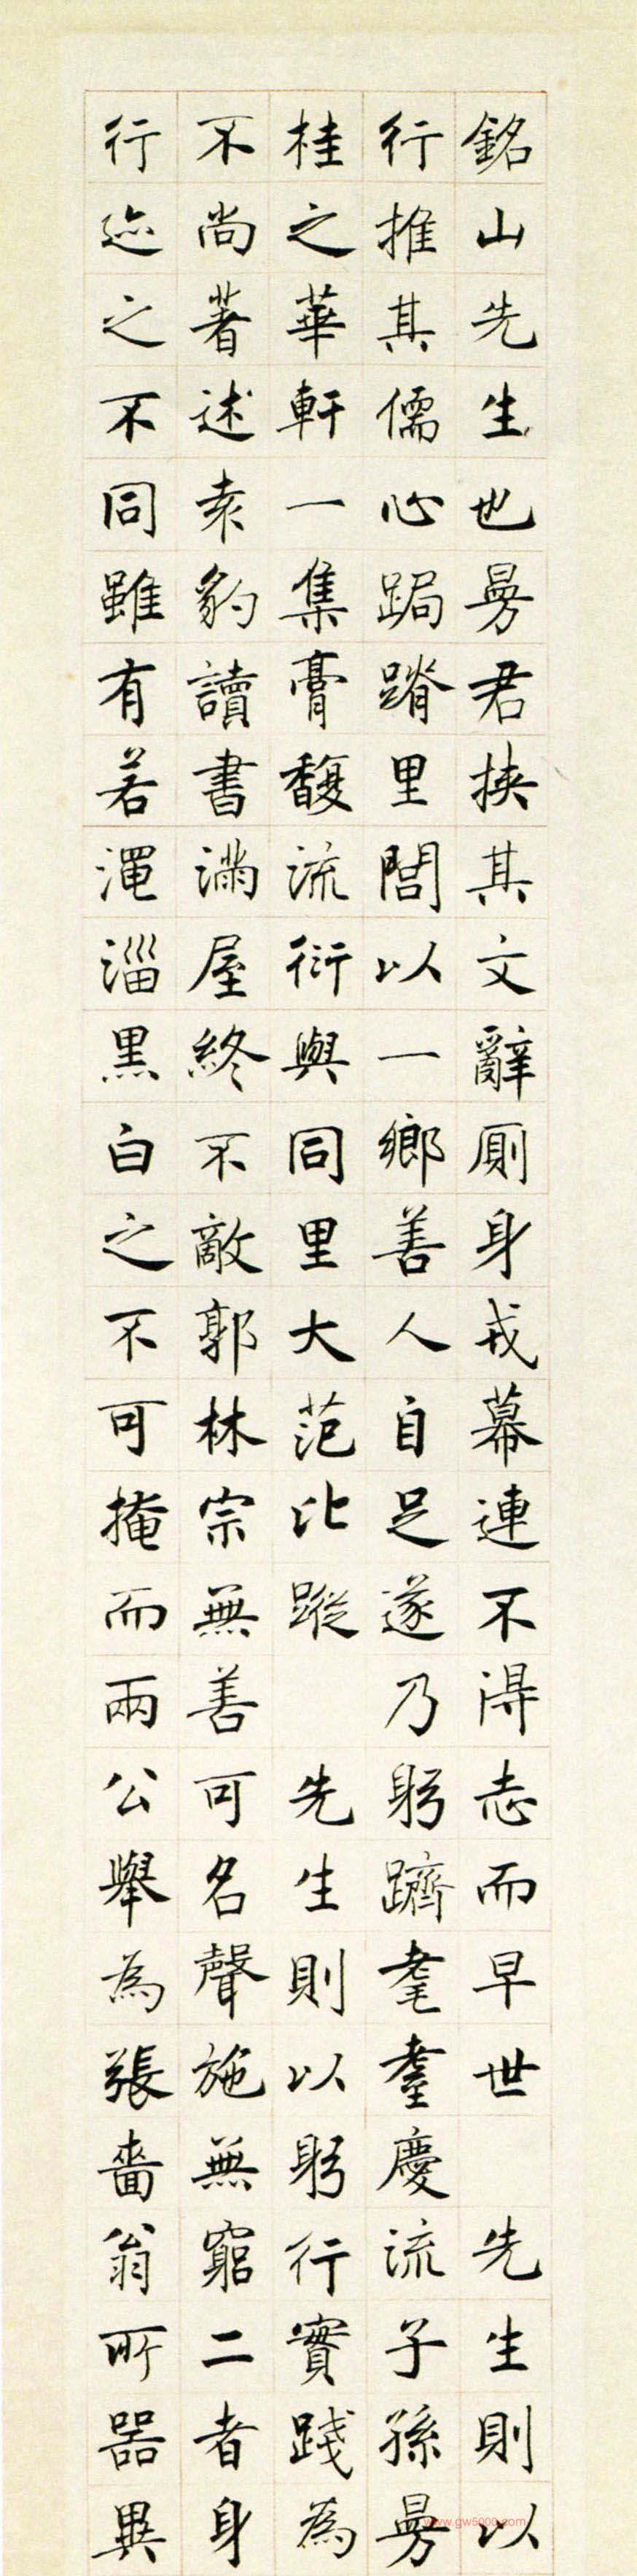 銘山先生也曼君挾其文辭厠身戎幕連不得志而早世 先生則以
行推其儒心跼蹐里閭以一鄉善人自足遂乃躬躋耄耋慶流子孫曼
桂之華軒一集膏馥流衍與同里大范比蹤 先生則以躬行實踐為
不尚著述袁豹讀書滿屋終不敵郭林宗無善可名聲施無窮二者身
行迹之不同雖有若澠淄黑白之不可掩而兩公舉為張嗇翁所器異
www.gw5000.com